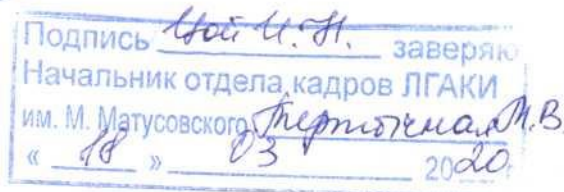 Подпись Цой И. Н. заверяю
Начальник отдела кадров ЛГАКИ
им. М. Матусовского М.В.
« 18 » 03 2020